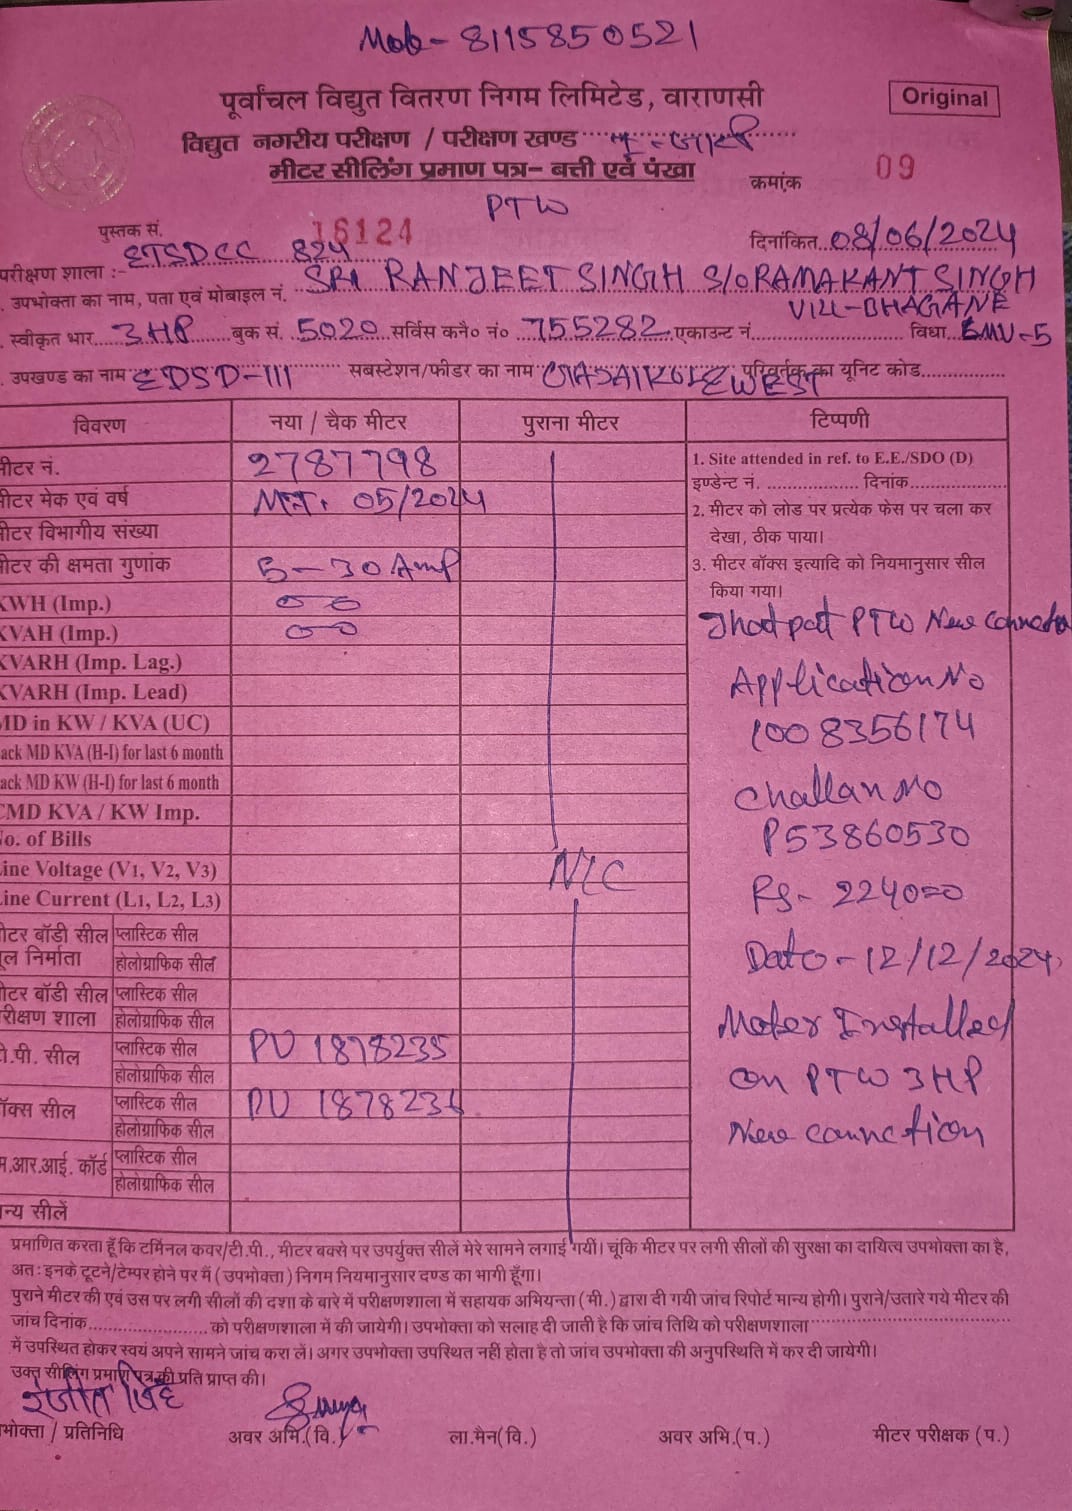 Mob- 8115850521
पूर्वांचल विद्युत वितरण निगम लिमिटेड, वाराणसी
Original
विद्युत नगरीय परीक्षण / परीक्षण खण्ड
मीटर सीलिंग प्रमाण पत्र- बत्ती एवं पंखा
क्रमांक 09
PTW
पुस्तक सं. 16124
दिनांकित 08/06/2024
परीक्षण शाला :- ETSDCC 824
उपभोक्ता का नाम, पता एवं मोबाइल नं. SRI RANJEET SINGH S/O RAMAKANT SINGH
VILL-BHAGANE
स्वीकृत भार 3 HP बुक सं. 5020 सर्विस कनै० नं० 755282 एकाउन्ट नं. विधा EMV-5
उपखण्ड का नाम EDSD-III सबस्टेशन/फीडर का नाम परिवर्तक का यूनिट कोड
विवरण नया / चैक मीटर पुराना मीटर टिप्पणी
मीटर नं. 2787798
1. Site attended in ref. to E.E./SDO (D)
इण्डेन्ट नं. दिनांक
मीटर मेक एवं वर्ष 05/2024
2. मीटर को लोड पर प्रत्येक फेस पर चला कर
देखा, ठीक पाया।
मीटर विभागीय संख्या
मीटर की क्षमता गुणांक 5-30 Amp
3. मीटर बॉक्स इत्यादि को नियमानुसार सील
किया गया।
KWH (Imp.)
KVAH (Imp.)
KVARH (Imp. Lag.)
KVARH (Imp. Lead)
MD in KW / KVA (UC)
ack MD KVA (H-I) for last 6 month
ack MD KW (H-I) for last 6 month
CMD KVA / KW Imp.
No. of Bills
Line Voltage (V1, V2, V3)
Line Current (L1, L2, L3)
N/C
Jhatpat PTW New Connection
Application No
1008356174
Challan No
P53860530
Rs- 2240=0
Date - 12/12/2024
Meter Installed
on PTW 3HP
New connction
मीटर बॉडी सील प्लास्टिक सील
मूल निर्माता होलोग्राफिक सील
मीटर बॉडी सील प्लास्टिक सील
परीक्षण शाला होलोग्राफिक सील
टी.पी. सील प्लास्टिक सील PU 1878235
होलोग्राफिक सील
बॉक्स सील प्लास्टिक सील PU 1878236
होलोग्राफिक सील
एम.आर.आई. कॉर्ड प्लास्टिक सील
होलोग्राफिक सील
अन्य सीलें
प्रमाणित करता हूँ कि टर्मिनल कवर/टी.पी., मीटर बक्से पर उपर्युक्त सीलें मेरे सामने लगाई गयीं। चूंकि मीटर पर लगी सीलों की सुरक्षा का दायित्व उपभोक्ता का है,
अतः इनके टूटने/टेम्पर होने पर मैं (उपभोक्ता) निगम नियमानुसार दण्ड का भागी हूँगा।
पुराने मीटर की एवं उस पर लगी सीलों की दशा के बारे में परीक्षणशाला में सहायक अभियन्ता (मी.) द्वारा दी गयी जांच रिपोर्ट मान्य होगी। पुराने/उतारे गये मीटर की
जांच दिनांक को परीक्षणशाला में की जायेगी। उपभोक्ता को सलाह दी जाती है कि जांच तिथि को परीक्षणशाला
में उपस्थित होकर स्वयं अपने सामने जांच करा लें। अगर उपभोक्ता उपस्थित नहीं होता है तो जांच उपभोक्ता की अनुपस्थिति में कर दी जायेगी।
उक्त सीलिंग प्रमाण पत्र की प्रति प्राप्त की।
रंजीत सिंह
उपभोक्ता / प्रतिनिधि अवर अभि.(वि.) ला.मैन(वि.) अवर अभि.(प.) मीटर परीक्षक (प.)